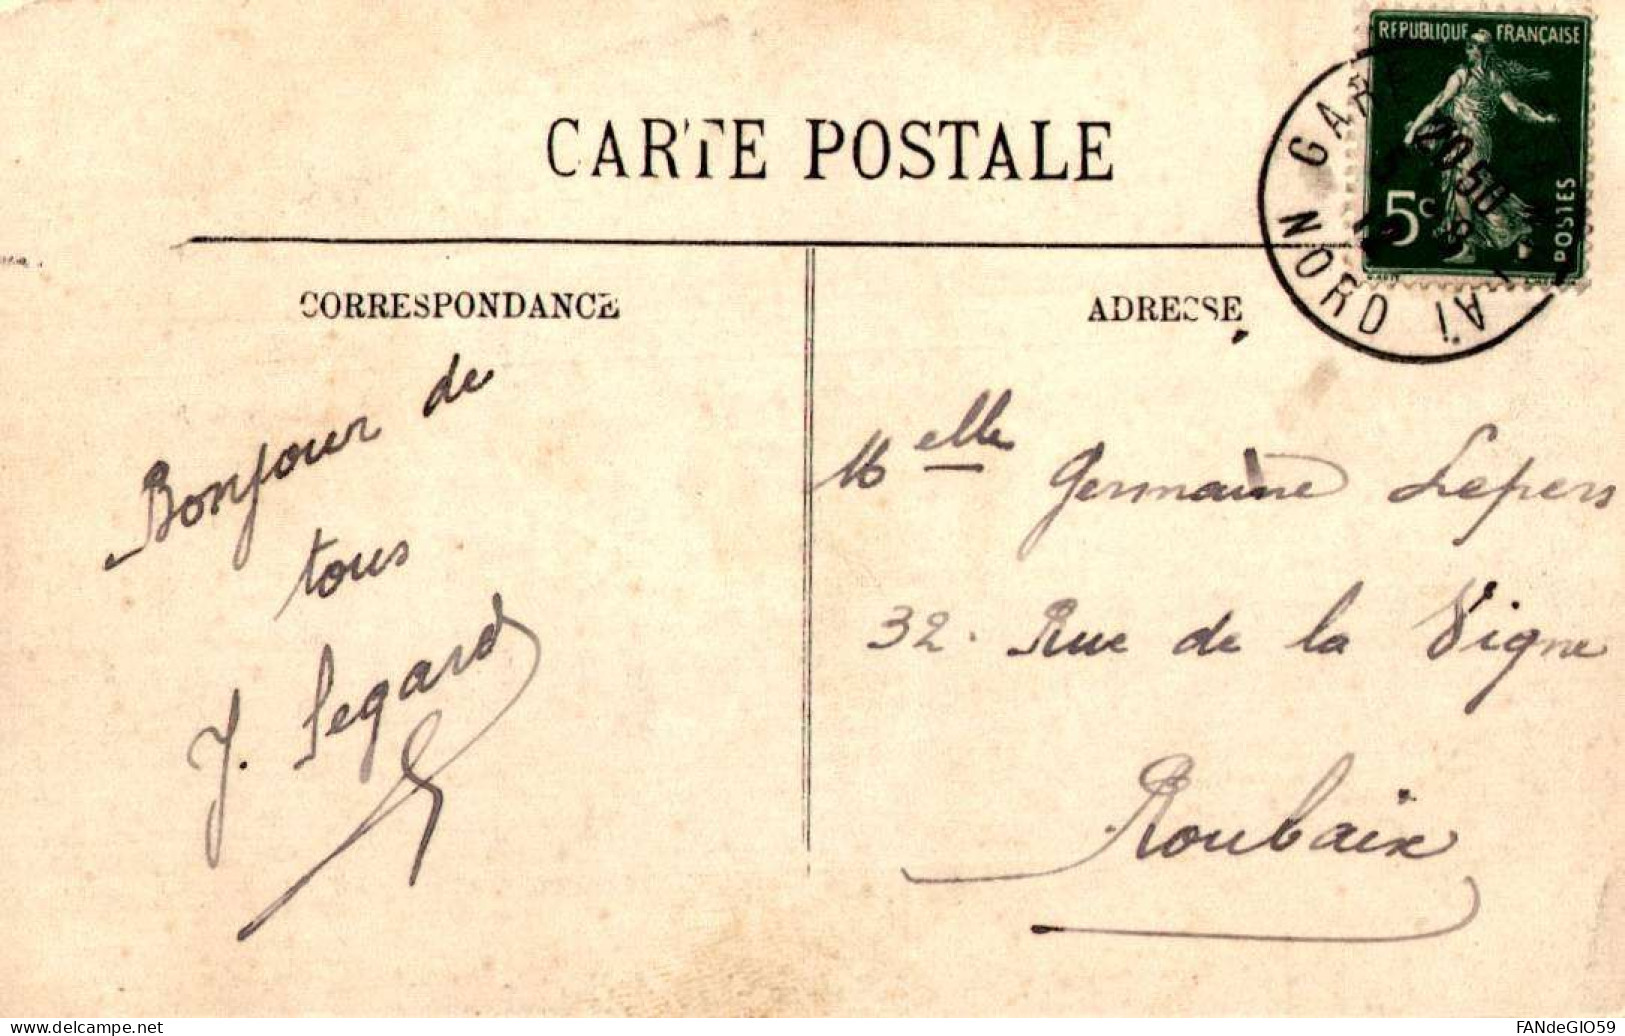 RÉPUBLIQUE FRANÇAISE
5c
POSTES
GARE
20 50
NORD
CARTE POSTALE
CORRESPONDANCE
ADRESSE
Bonjour de
tous
J. Segard
Melle Germaine Lepers
32. Rue de la Vigne
Roubaix
www.delcampe.net
FANdeGIO59